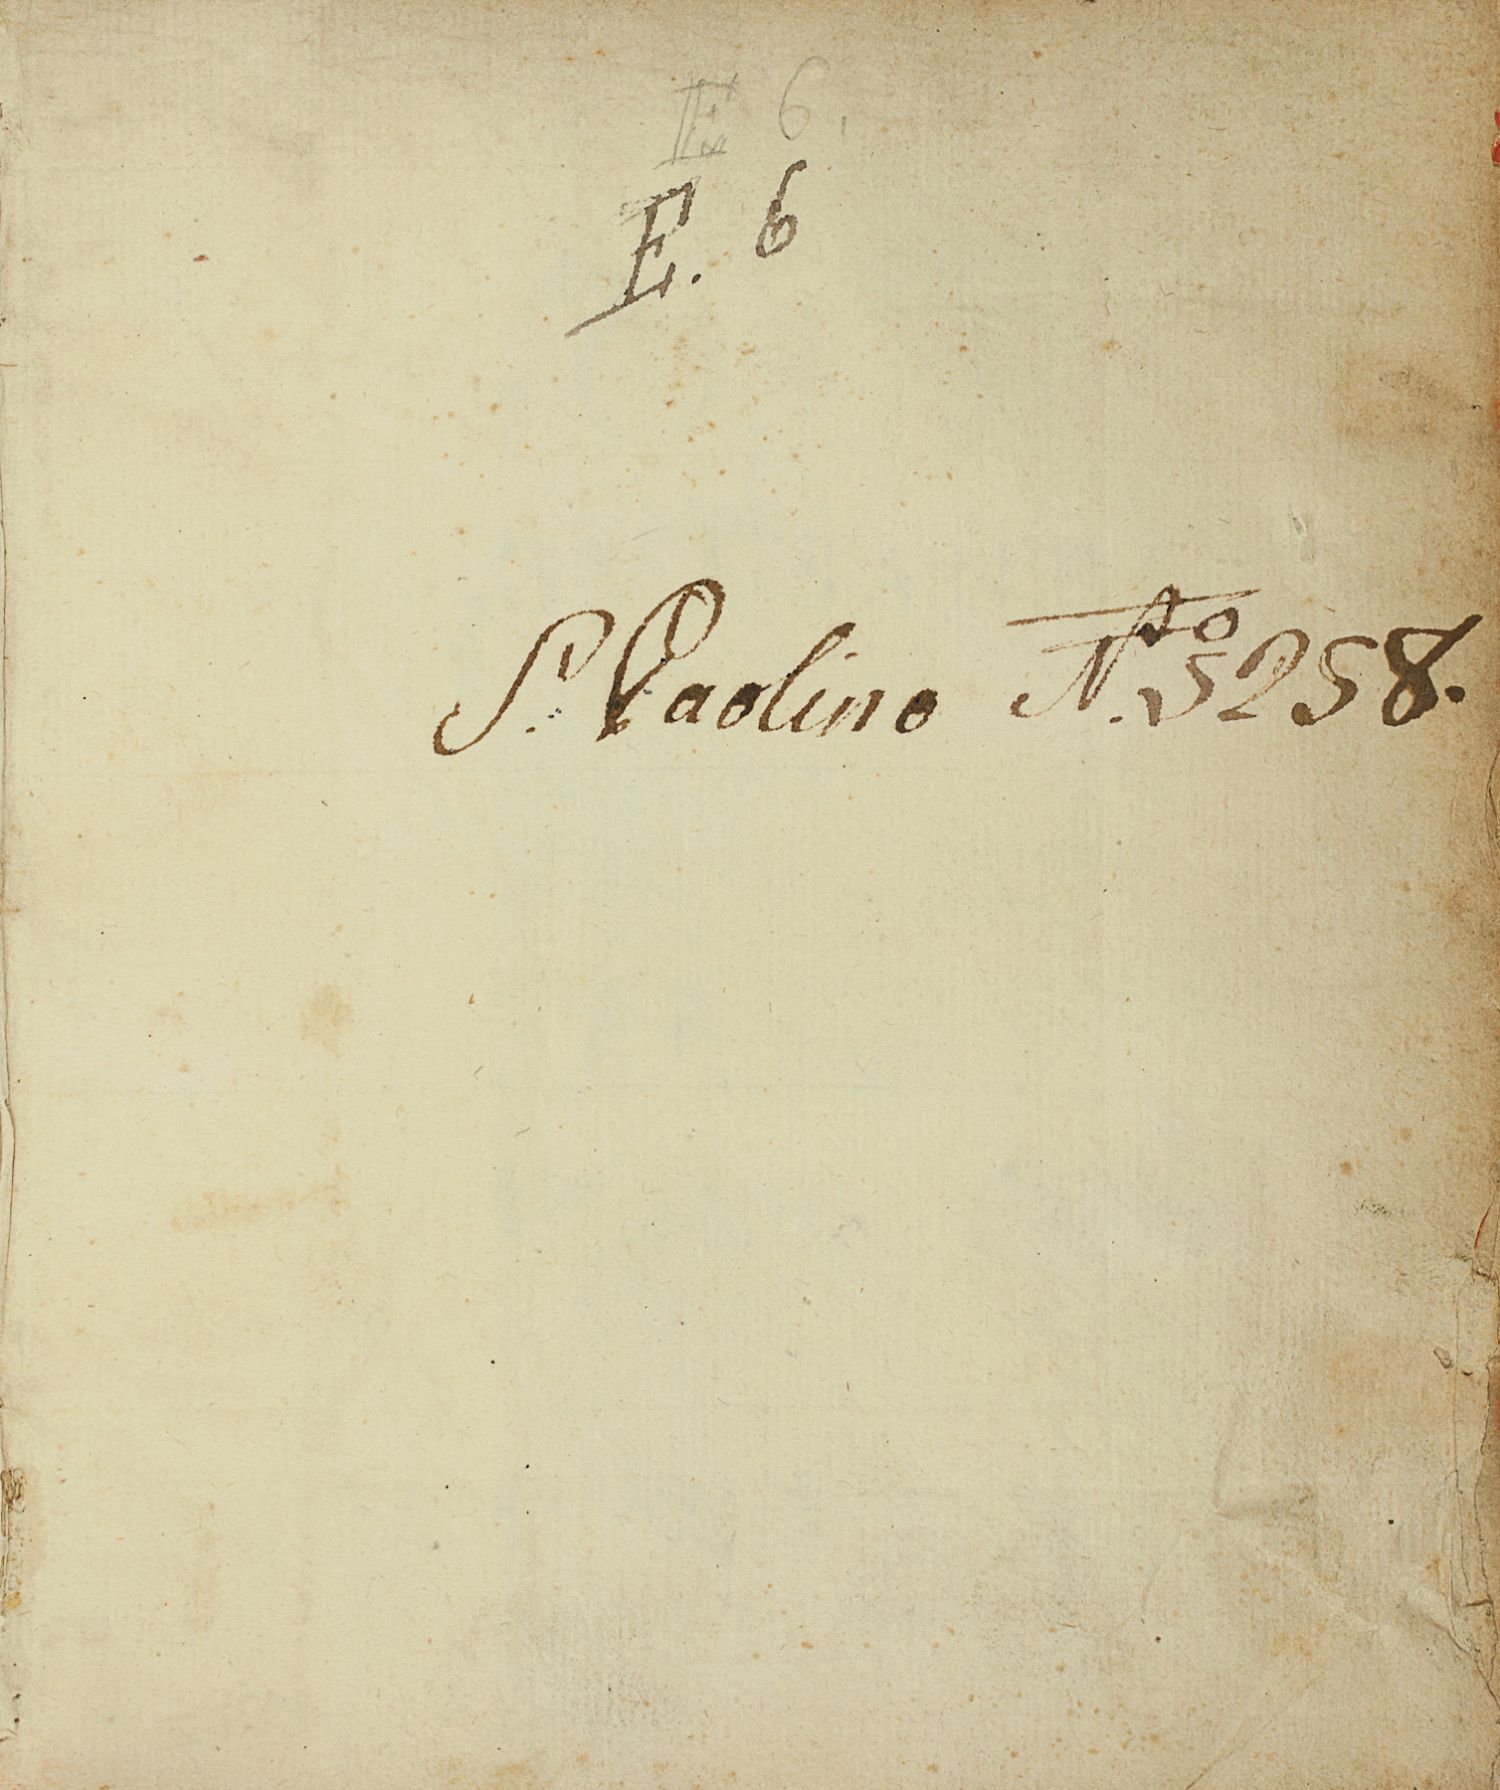 6.
E. 6
S. Paolino No. 5258.